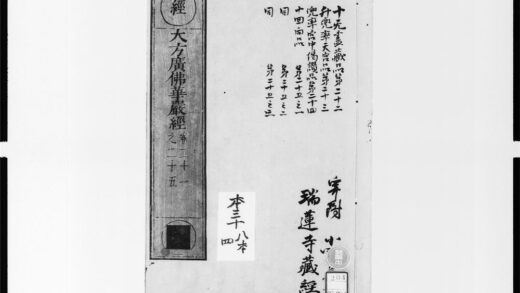 十無盡藏品第二十二
升兜率天宮品第二十三
兜率宮中偈讚品第二十四
十回向品 第二十五之一
同 第二十五之二
同 第二十五之三
經
大方廣佛華嚴經
第二十一
之二十五
瑞蓮寺藏經
本三十八本
四